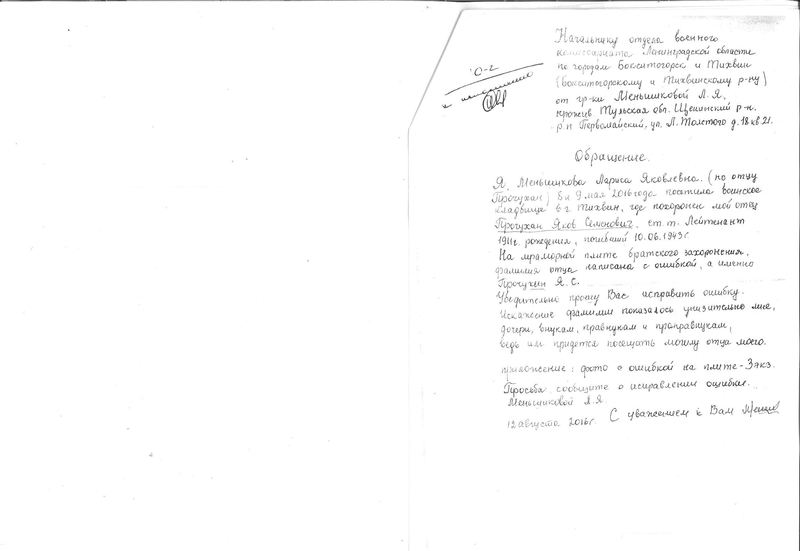 О-г
к исполнению
Начальнику отдела военного
комиссариата Ленинградской области
по городам Бокситогорск и Тихвин
(Бокситогорскому и Тихвинскому р-ну)
от гр-ки Меньшиковой Л.Я.
прожив Тульская обл. Щекинский р-н.
р.п Первомайский, ул. Л. Толстого д.18 кв 21.
Обращение.
Я, Меньшикова Лариса Яковлевна. (по отцу
Прочухан) 8 и 9 мая 2016 года посетила воинское
кладбище в г. Тихвин, где похоронен мой отец
Прочухан Яков Семенович, ст. т. Лейтенант
1911г. рождения, погибший 10.06.1943г.
На мраморной плите братского захоронения,
фамилия отца написана с ошибкой, а именно
Прочухин Я.С.
Убедительно прошу Вас исправить ошибку.
Искажение фамилии показалось унизительно мне,
дочери, внукам, правнукам и праправнукам,
ведь им придется посещать могилу отца моего.
приложение: фото с ошибкой на плите - 3 экз.
Просьба сообщите о исправлении ошибки.
Меньшиковой Л.Я
12 августа 2016г. С уважением к Вам